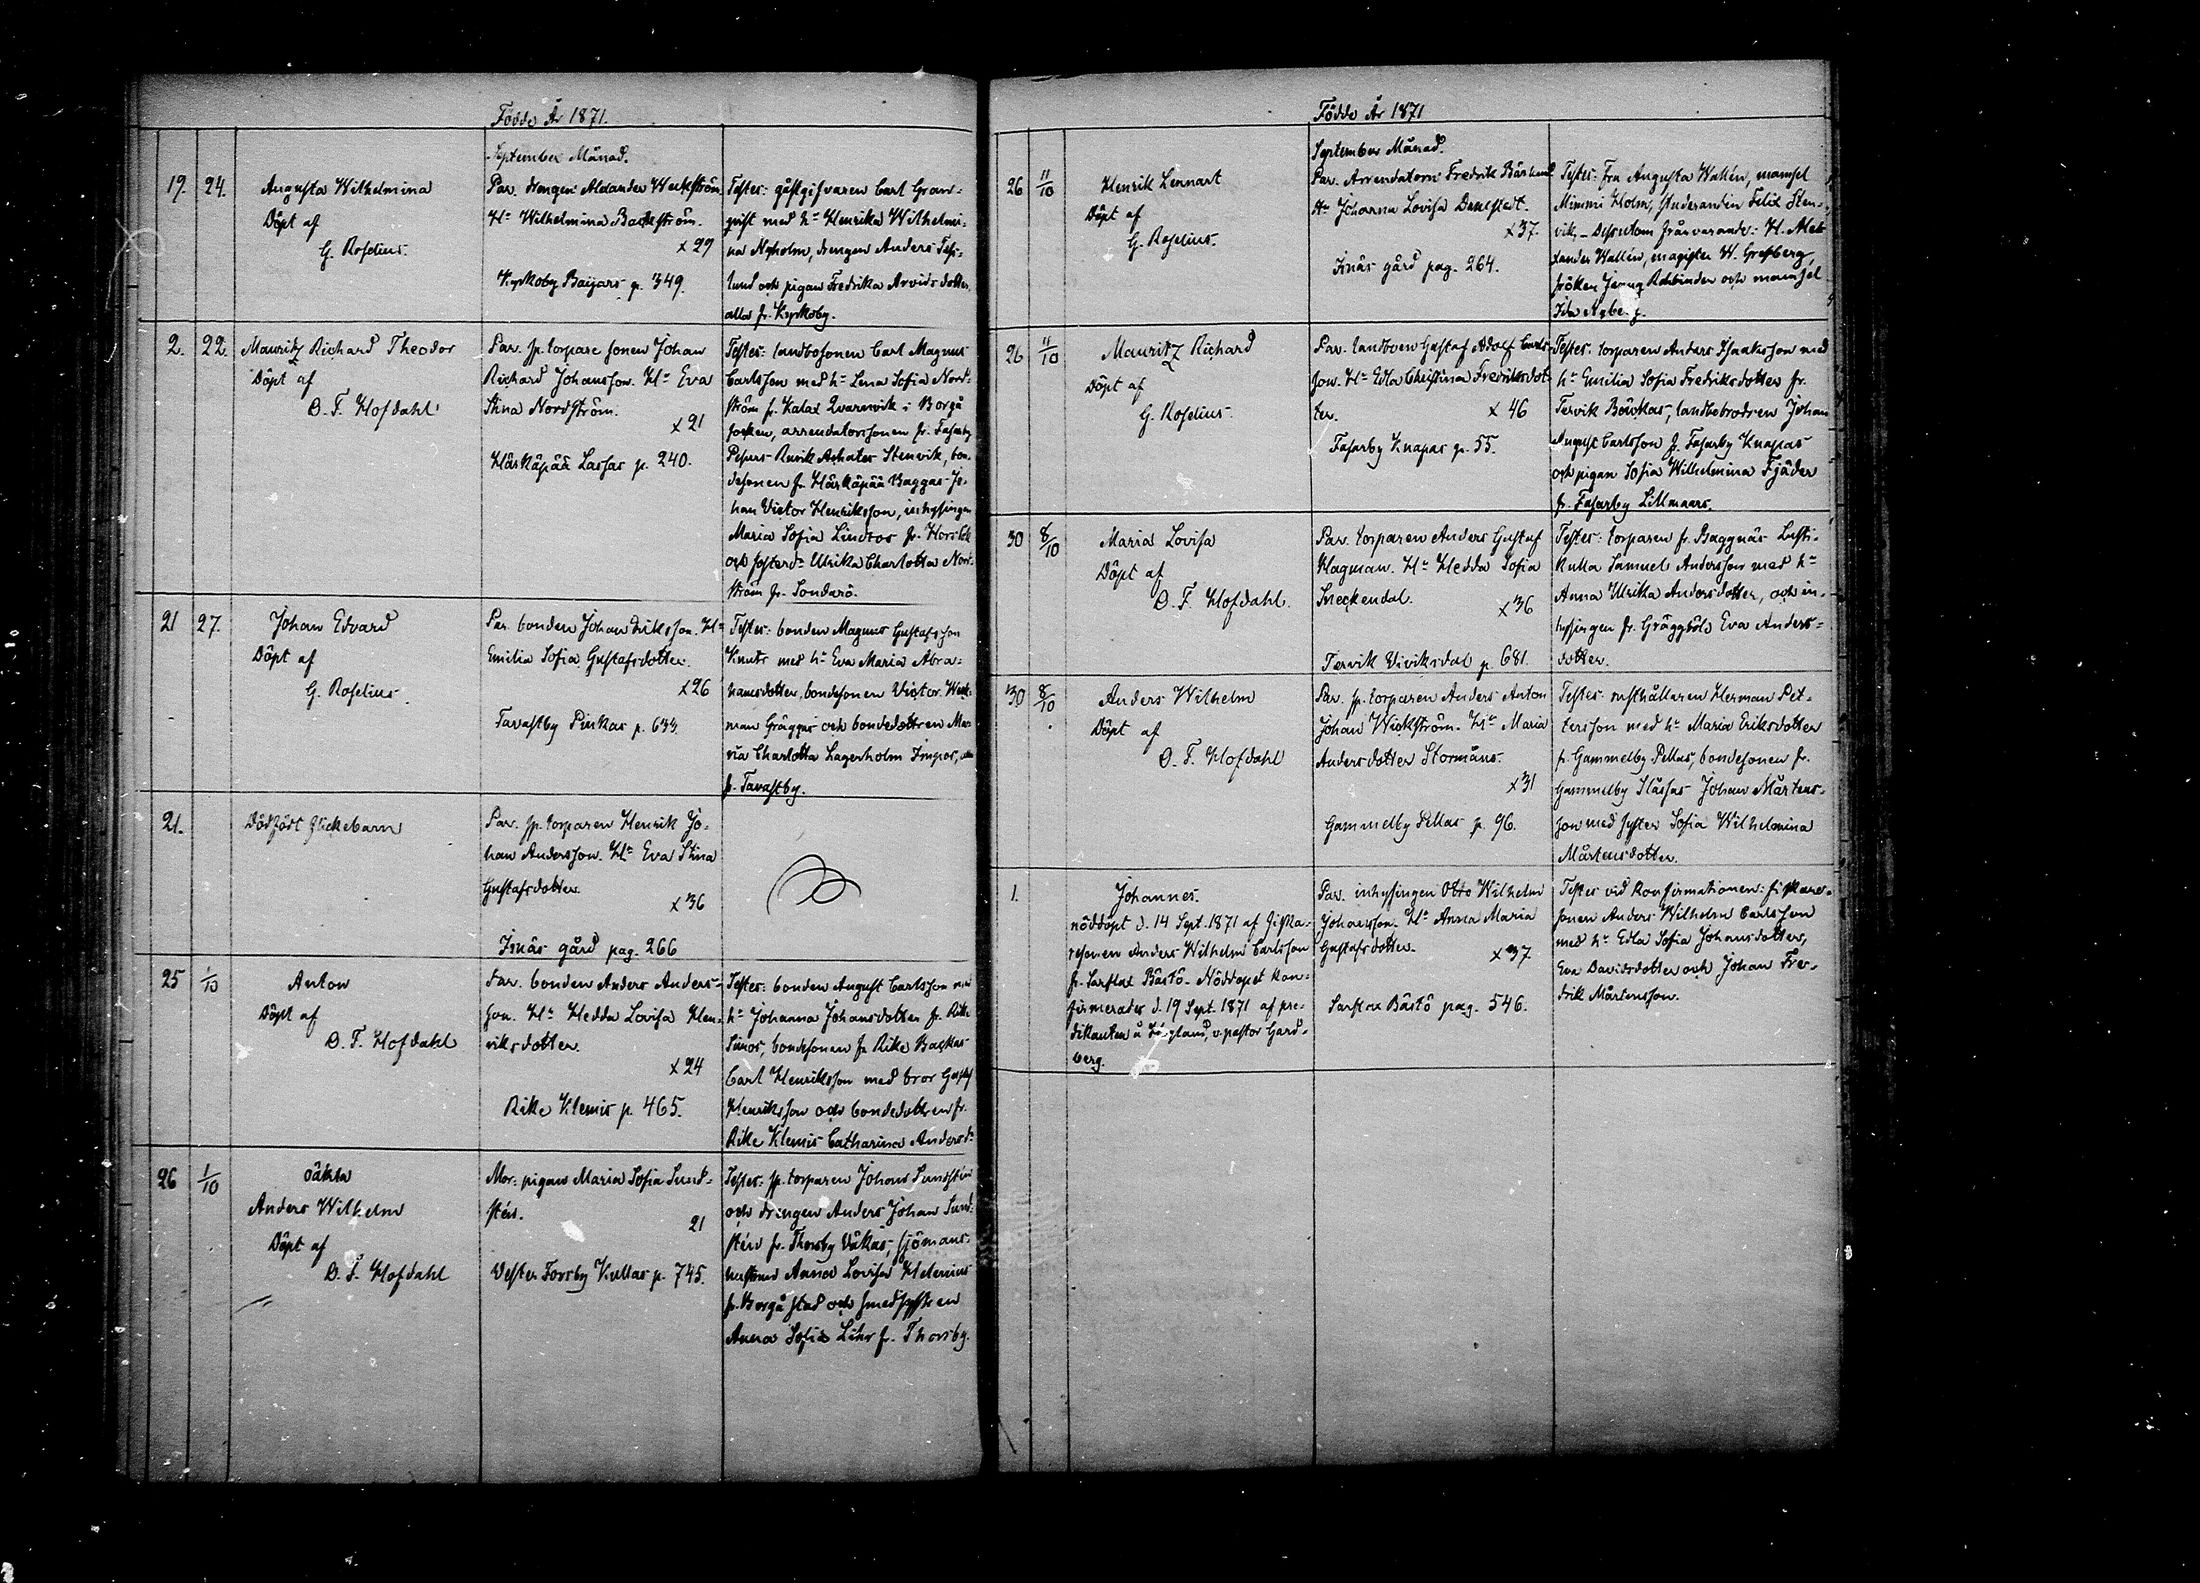 Födde År 1871.
September Månad.
19. 24. Augusta Wilhelmina
Döpt af
G. Roselius.
Par. drengen Alexander Weckström
Hu Wilhelmina Backström.
x 29
Kyrkoby Baijars p. 349.
Testes: gästgifvaren Carl Gran-
qvist med hu Henrika Wilhelmi-
na Nyholm, drengen Anders Tess-
lund och pigan Fredrika Arvidsdotter,
alla fr. Kyrkoby.
2. 22. Mauritz Richard Theodor
Döpt af
O. F. Hofdahl
Par. sp. torpare sonen Johan
Richard Johansson. Hu Eva
Stina Nordström.
x 21
Härkäpää Lassas p. 240.
Testes: landbosonen Carl Magnus
Carlsson med hu Lena Sofia Nord-
ström fr. Kalax Qvarnvik i Borgå
socken, arrendatorssonen fr. Fasarby
Pepars Rurik Achates Stenvik, bon-
desonen fr. Härkäpää Baggas Jo-
han Victor Henriksson, inhysingen
Maria Sofia Lindros fr. Horslök
och systerdr Ulrika Charlotta Nord-
ström fr. Sondarö.
21 27. Johan Edvard
Döpt af
G. Roselius.
Par. bonden Johan Eriksson. Hu
Emilia Sofia Gustafsdotter.
x 26
Tavastby Pinkas p. 633.
Testes: bonden Magnus Gustafsson
Knuts med hu Eva Maria Abra-
hamsdotter, bondesonen Victor Wink-
man Gräggas och bondedottren Ma-
ria Charlotta Lagerholm Impos, alla
fr. Tavastby.
21. Dödfödt flickebarn
Par. sp. torparen Henrik Jo-
han Andersson. Hu Eva Stina
Gustafsdotter.
x 36
Isnäs gård pag. 266
25 1/10 Anton
Döpt af
O. F. Hofdahl
Par. bonden Anders Anders-
son. Hu Hedda Lovisa Hen-
riksdotter.
x 24
Rike Klemis p. 465.
Testes: bonden August Carlsson med
hu Johanna Johansdotter fr. Rike
Simos, bondesonen fr. Rike Backas
Carl Henriksson med bror Gustaf
Henriksson och bondedottren fr.
Rike Klemis Catharina Andersdr
26 1/10 oäkta
Anders Wilhelm
Döpt af
O. F. Hofdahl
Mor: pigan Maria Sofia Sund-
stén.
21
Vester Forsby Kullas p. 745.
Testes: sp. torparen Johan Sundstén
och drengen Anders Johan Sund-
stén fr. Thorsby Våkas, sjömans-
hustrun Anna Lovisa Helenius
fr. Borgå stad och smedhustrun
Anna Sofia Lihr fr. Thorsby.
Födde År 1871
September Månad.
26 11/10 Henrik Lennart
Döpt af
G. Roselius.
Par. Arrendatorn Fredrik Bäcklund
Hu Johanna Lovisa Danstedt.
x 37.
Isnäs gård pag. 264.
Testes: Fru Augusta Wallén, mamsel
Mimmi Holm, Studeranden Felix Sten-
vik, – Dessutom frånvarande: H. Alex-
ander Wallén, magister W. Grefberg,
fröken Jenny Rehbinder och mamsel
Ida Nyberg.
26 11/10 Mauritz Richard
Döpt af
G. Roselius.
Par. landboen Gustaf Adolf Carls-
son. Hu Edla Christina Fredriksdot-
ter.
x 46
Fasarby Knapas p. 55.
Testes: torparen Anders Isaaksson med
hu Emilia Sofia Fredriksdotter fr.
Tervik Böckas, landbobrodren Johan
August Carlsson fr. Fasarby Knapas
och pigan Sofia Wilhelmina Fjäder
fr. Fasarby Lillmaars.
30 8/10 Maria Lovisa
Döpt af
O. F. Hofdahl.
Par. torparen Anders Gustaf
Hagman. Hu Hedda Sofia
Sneckendal.
x 36
Tervik Viviksdal p. 681.
Testes: torparen fr. Baggnäs Lusti-
kulla Samuel Andersson med hu
Anna Ulrika Andersdotter, och in-
hysingen fr. Gräggböle Eva Anders-
dotter.
30 8/10 Anders Wilhelm
Döpt af
O. F. Hofdahl
Par. sp. torparen Anders Anton
Johan Wickström. Hu Maria
Andersdotter Stormåns.
x 31
Gammelby Pellas p. 96.
Testes: rusthållaren Herman Pet-
tersson med hu Maria Eriksdotter
fr. Gammelby Pellas, bondesonen fr.
Gammelby Slässas Johan Mårtens-
son med syster Sofia Wilhelmina
Mårtensdotter.
1. Johannes.
nöddöpt d. 14 Sept. 1871 af fiska-
resonen Anders Wilhelm Carlsson
fr. Sarflax Båstö. Nöddopet kon-
firmerades d. 19 Sept. 1871 af pre-
dikanten å Högland, v. pastor Gard-
berg.
Par. inhysingen Otto Wilhelm
Johansson. Hu Anna Maria
Gustafsdotter.
x 37
Sarflax Båstö pag. 546.
Testes vid konfirmationen: fiskare-
sonen Anders Wilhelm Carlsson
med hu Edla Sofia Johansdotter,
Eva Davidsdotter och Johan Fre-
drik Mårtensson.